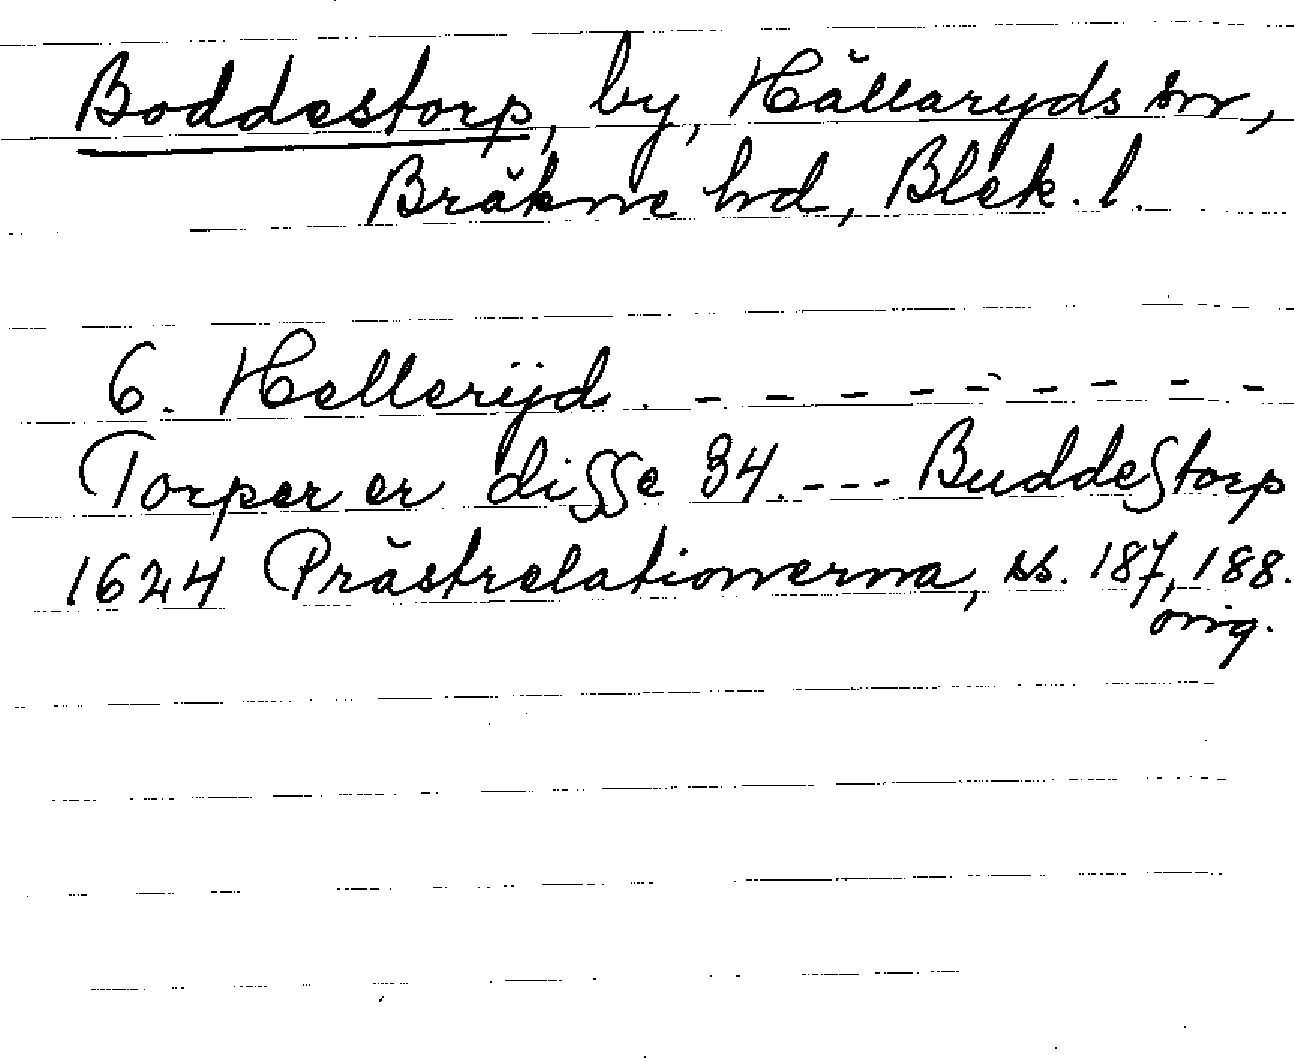 Boddestorp, by, Hällaryds sn,
Bräkne hd, Blek. l.
6. Hellerÿd. - - - - - - - - -
Torper er disse 34. - - - Buddestorp
1624 Prästrelationerna, ss. 187, 188.
orig.